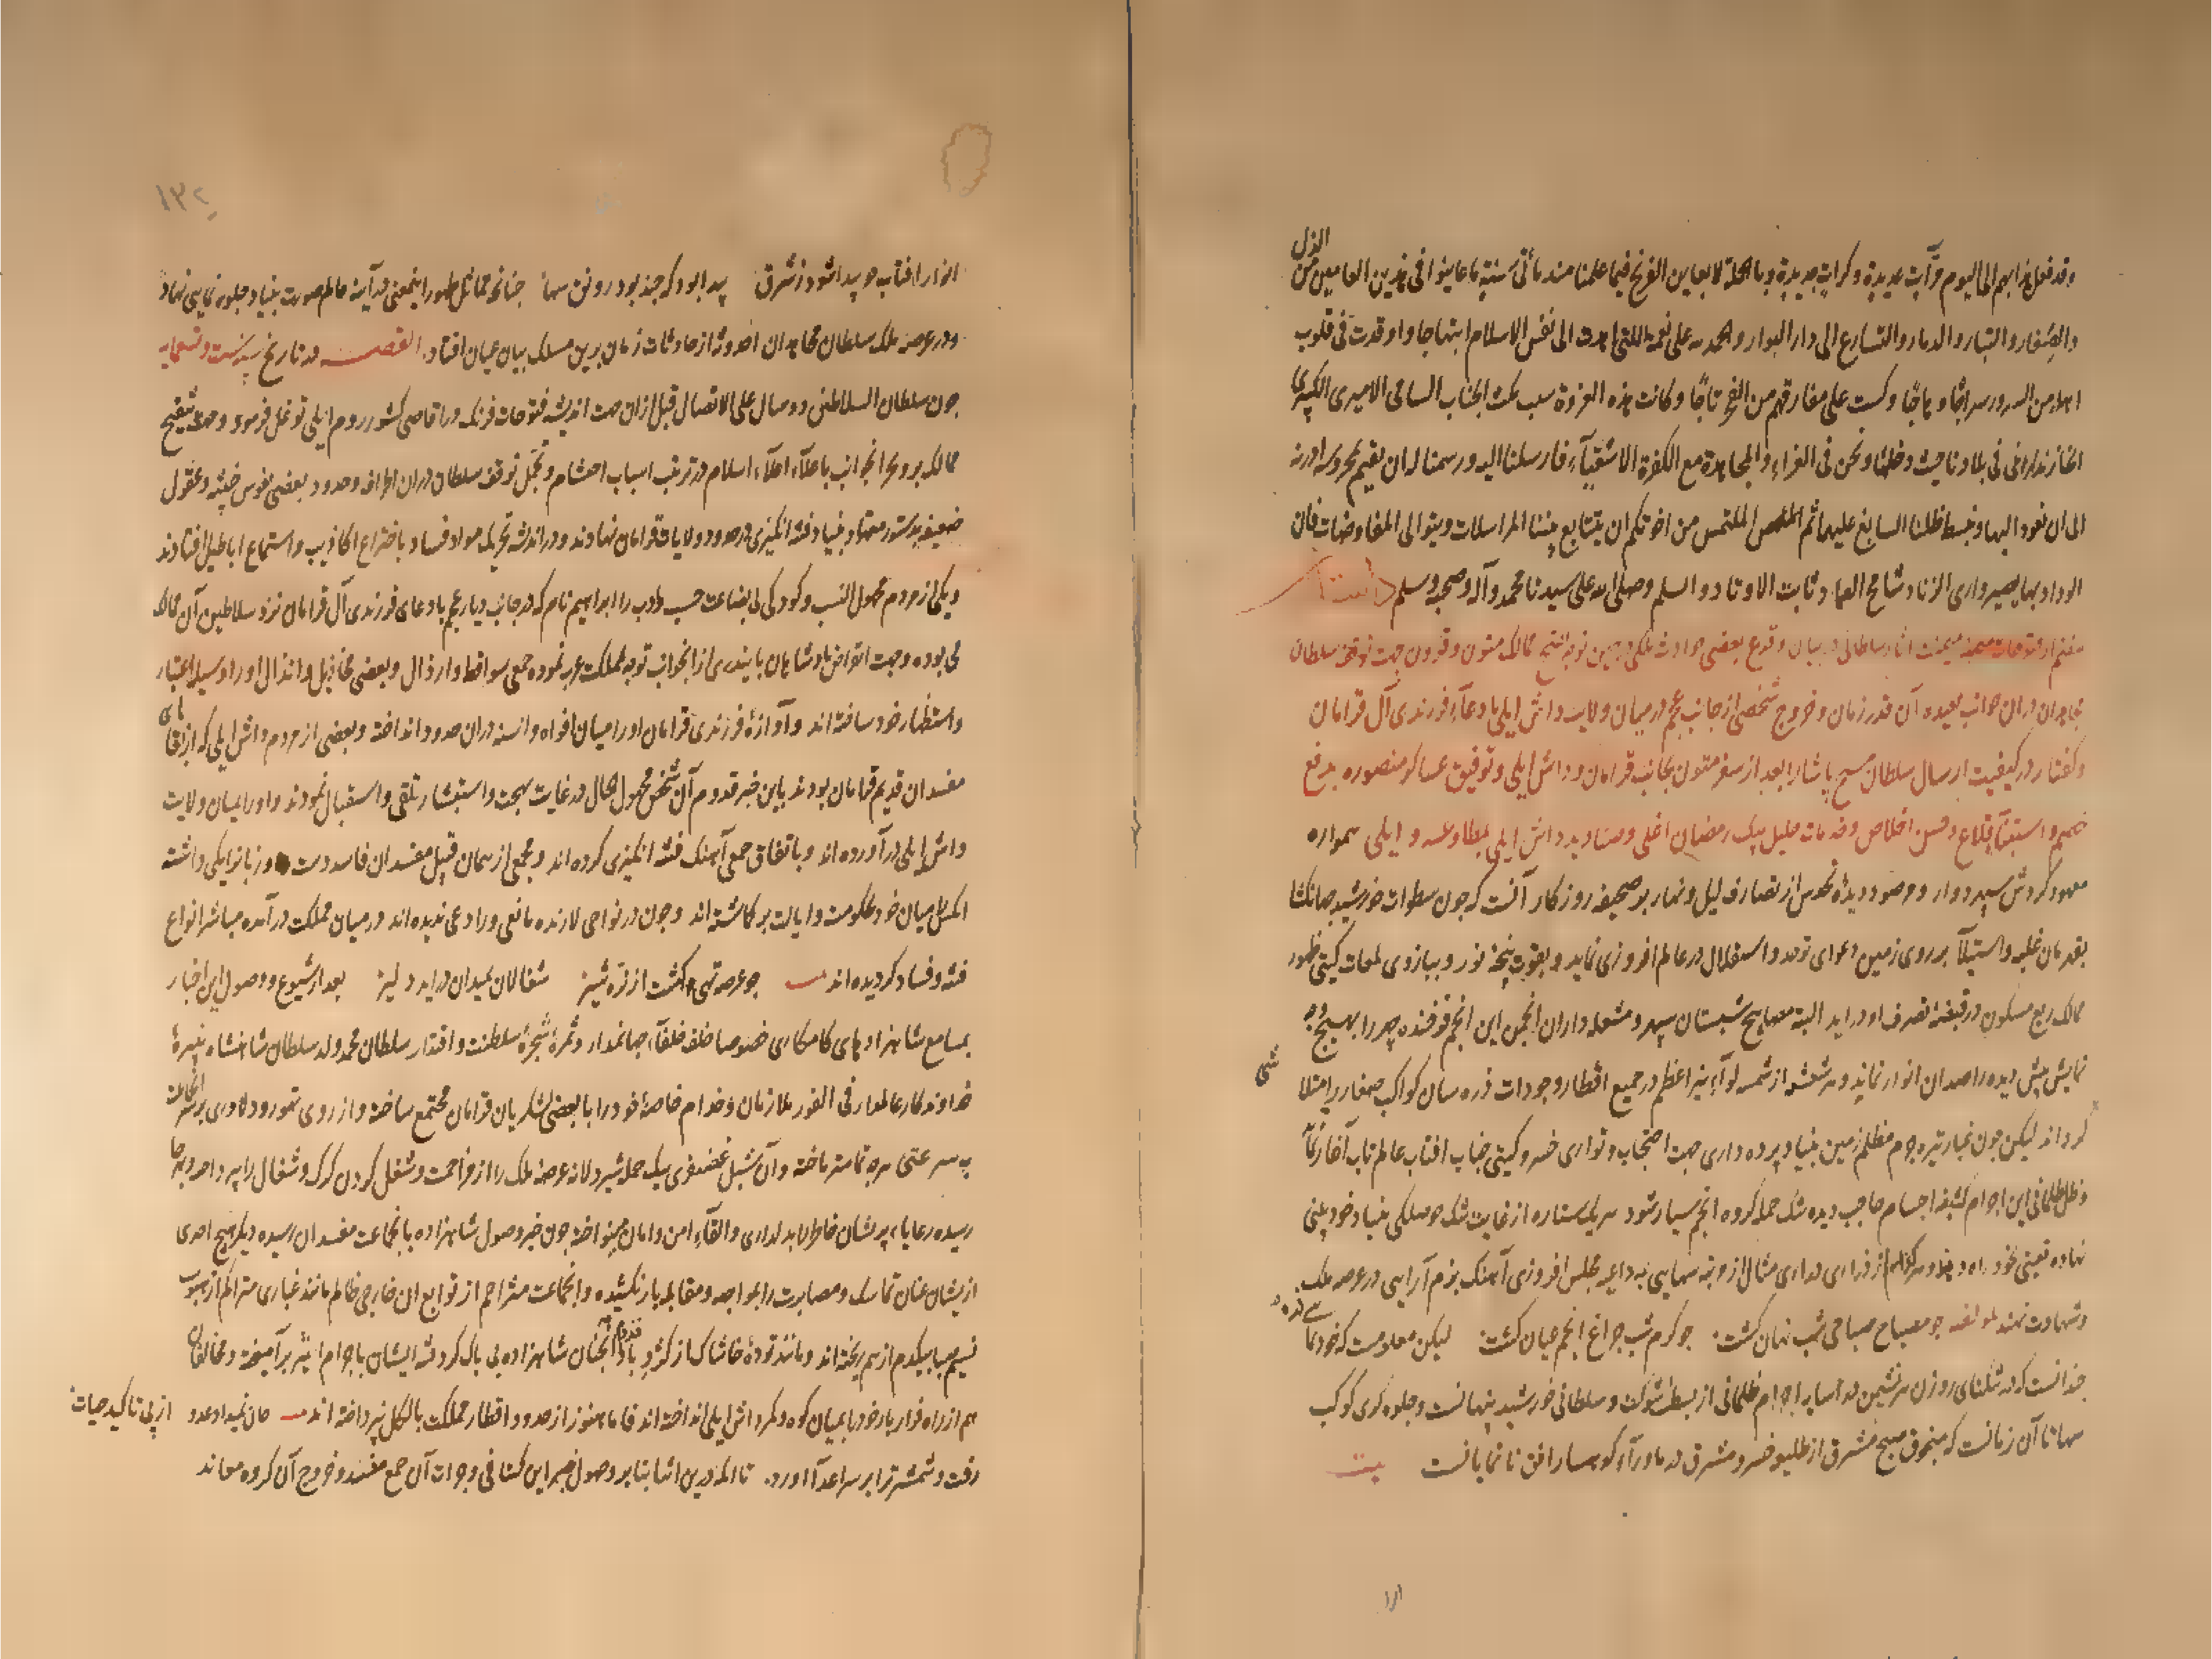 وقد فعل خرابهم الی الیوم مرّات عدیدة وکرات جدیدة وبالجملة لا یعاین الفرنج فیما علمنا منذ مأتی سنیة ما عاینوا فی هذین العامین من الذل
والصغار والتبار والدمار والتسارع الی دار البوار والحمد لله علی نعمه اللتی اهدت الی نفس الاسلام ابتهاجا واوقدت فی قلوب
اهله من السرور سراجًا وهاجًا وکست علی مفارقهم من الفخر تاجًا وکانت هذه الغزوة سبب مکث الجناب السامی الامیری الکبیری
فی بلادنا حیث دخلها ونحن فی الغزاء والمجاهدة مع الکفرة الاشقیآء فارسلنا الیه ورسمنا له ان یقیم بمحروسه ادرنه
الی ان نعود الیها ونبسط ظلنا السابغ علیها ثم الملتمس من اخوتکم ان یتتابع بیننا المراسلات ویتوالی المفاوضات فان
الوداد بها یصیر واری الزناد شامخ العماد ثابت الاوتاد والسلم وصلی الله علی سیدنا محمد وآله وصحبه وسلم
سلطانی در بیان وقوع بعضی حوادث ملکی در حین توجه بفتح ممالک متون وقرون جهت توقف سلطان
مجاهدان در آن جوانب بعیده آن قدر زمان وخروج شخصی از جانب عجم در میان ولایت داش ایلی بادعآء فرزندی آل قرامان
وگفتار در کیفیت ارسال سلطان مسیح پاشا را بعد از سفر متون بجانب قرامان وداش ایلی وتوفیق عساکر منصوره بدفع
خصم و رمضان اغلی وصنادید داش ایلی همواره
معهود گردش سپهر دوار ومرصود دیده از تصاریف لیل ونهار بر صحیفه روزگار آنست که چون سطوات خورشید جهانکشا
بقهرمان غلبه واستیلآ بر روی زمین دعوای توحد واستقلال در عالم افروزی نماید وبقوت پنجه نور وببازوی لمعات گیتی ظهور
ممالک ربع مسکون در قبضهٔ تصرف او در آید البته مصابیح شبستان سپهر ومشعله داران انجمن این انجم فرخنده چهر را بهیچ وجه
نمایش پیش دیده راصدان انوار نماند وهر شعشعه از شمسه لوآء نیر اعظم در جمیع اقطار وجودات ذره سان کواکب صغار را متلاشی
گرداند لیکن چون غبار تیره جرم مظلم زمین بنیاد پرده داری جهت احتجاب وتواری خسرو گیتی جناب افتاب عالم تاب آغاز نمآ
وظل ظلمانی این اجرام کثیفه اجسام حاجب دیده شک جمله گروه انجم سیار شود هر یک ستاره از غایت تنک حوصلکی بنیاد خود بینی
نهاده از ذراری دراری مثال از وجه سهایی به داعیه مجلس افروزی آهنک بزم آرایی در عرصه ملک
وشهادت نهند لمولفه چو مصباح صباحی شب نهان کشت چو کرم شب چراغ انجم عیان کشت لیکن معلومست که خود نما
چندانست که در تنکنای روزن هر نشیمن در سایه اجرام ظلمانی از بسطت شوکت وسلطانی خورشید پنهانست وجلوه کری کوکب
سها تا آن زمانست که سنجوق صبح مشرق از طلیعه خسرو مشرق در ماورآء کوهسار افق نا نمایانست بیت
١٣٢
انوار افتاب چو پیدا شود ز شرق پیدا بود که چند بود رونق سها چنانچه مماثل ظهور اینمعنی در آینه عالم صورت بنیاد جلوه نمایی نهاد
ودر عرصه ملک سلطان مجاهدان احدوثه از حادثات زمان برین مسلک بیان عیان افتاد القصه در تاریخ سنه ست وتسعمایه
چون سلطان السلاطینی دو سال علی الاتصال قبل ازان جهت اندیشه فتوحات فرنک در اقاصی کشور روم ایلی توغل فرمود
ممالک بر وبحر انجوانب باعلآء اعلآء اسلام در ترتیب اسباب احتشام وتجمل توقف سلطان دران اطراف وحدود بعضی نفوس خبیثه وعقول
ضعیفه بدستور معتاد بنیاد فتنه انگیزی در حدود ولایات قرامان نهادند ودر اندیشه تحریک مواد فساد باختراع اکاذیب واستماع اباطیل افتادند
ویکی از مردم مجهول النسب وکودکی بی بضاعت حسب وادب را ابراهیم نام که در جانب دیار عجم بادعای فرزندی آل قرامان نزد سلاطین آن ممالک
می بوده وجهت انقراض پادشاهان بایندری از انجوانب توجه مملکت عرب نموده جمعی سواقط وارذال وبعضی مخاذیل واندال او را وسیله اعتبار
واستظهار خود ساخته اند وآوازهٔ فرزندی قرامان او را میان افواه والسنه دران حدود انداخته وبعضی از مردم داش ایلی که از بقایای
مفسدان قدیم قرامان بودند باین خبر قدوم آن شخص مجهول الحال در غایت بهجت واستبشار تلقی واستقبال نمودند واورا میان ولایت
داش ایلی در آورده اند وباتفاق جمعی آهنک فتنه انگیزی کرده اند وجمعی از همان قبیل مفسدان فاسد دست وزبانرا یکی داشته
میان خود بحکومت وایالت برکاشته اند وچون در نواحی لارنده مانعی ورادعی ندیده اند در میان مملکت در آمده مباشر انواع
فتنه وفساد گردیده اند چو عرصه تهی گشت از نره شیر شغالان بمیدان در اید دلیر بعد از شیوع ووصول این اخبار
بمسامع شاهزادهای کامکاری خصوصا خلف خلفآء جهانمدار وثمرهٔ شجرهٔ سلطنت واقتدار سلطان محمد ولد سلطان شاهنشاه نبیرهٔ
خداوندکار عالمدار فی الفور ملازمان وخدام خاصهٔ خود را با بعضی لشکریان قرامان مجتمع ساخته واز روی تهور ودلاوری بر سر انجماعت
بسرعتی هر چه تمامتر تاخته وآن شبل غضنفری بیک حمله شیر دلانه عرصه ملک را از مزاحمت وشغل کردن گرک وشغال را پرداخته وبهر جا
رسیده رعایاء پریشان خاطر را بدلداری والقآء امن وامان مینواخته چون خبر وصول شاهزاده بانجماعت مفسدان رسیده دیگر هیچ احدی
از ایشان عنان تماسک ومصابرت را بمواجهه ومقابله باز نکشیده وانجماعت متزاحم از توابع ان خارجی ظالم مانند غباری متراکم از هبوب
نسیم صبا بیکدم از هم ریخته اند ومانند تودهٔ خاشاک از کر وباد قدوم آنچنان شاهزاده بی باک گرد فتنه ایشان باجرام اثیر بر آمیخته ومخالفان
هم از راه فرار باز خود را بمیان کوه وکمر داش ایلی انداخته اند فاما هنوز از حدود واقطار مملکت بالکل نپرداخته اند از پی تاکید حیات
رفت وشمشیر ترا بر سر اعدآ آورد تا انکه درین اثنا بنا بر وصول خبر این گستاخی وجرات آن جمع مفسد وخروج آن گروه معاند